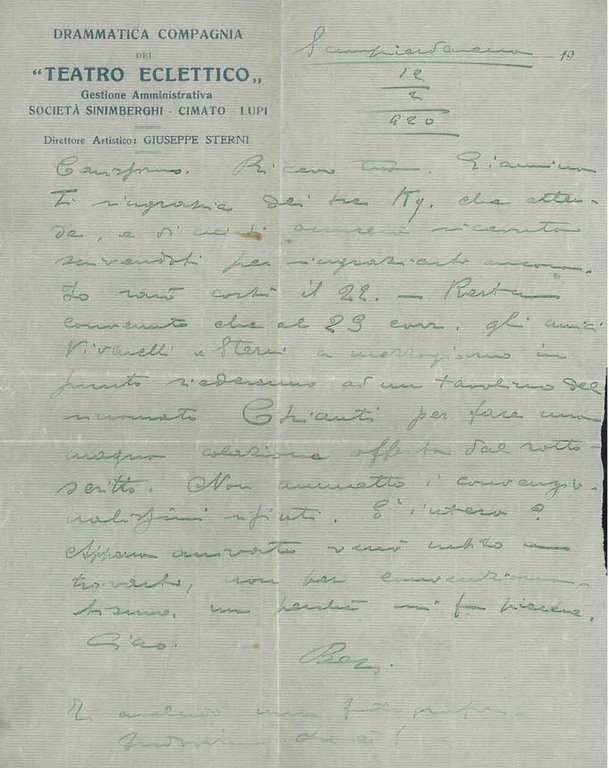 DRAMMATICA COMPAGNIA
DEL
“TEATRO ECLETTICO„
Gestione Amministrativa
SOCIETÀ SINIMBERGHI - CIMATO - LUPI
Direttore Artistico: GIUSEPPE STERNI
Sampierdarena 19
12
2
920
Carissimo. Ricevo tua. Giannina
Ti ringrazia dei tre Kg. che atten-
de, e di cui ti ricevuta
scrivendoti per ringraziarti ancora.
Io sarò costì il 22. — Resta
convenuto che al 23 corr. gli amici
Vivarelli e Sterni a mezzogiorno in
punto siederanno ad un tavolino del
rinomato Chianti per fare una
magna colazione offerta dal sotto-
scritto. Non ammetto i convenzio-
nalissimi rifiuti. E' inteso?
Appena arrivato verrò subito a
trovarti, non per convenziona-
lismo, ma perchè mi fa piacere.
Ciao.
Ti una fotografia.
che è!